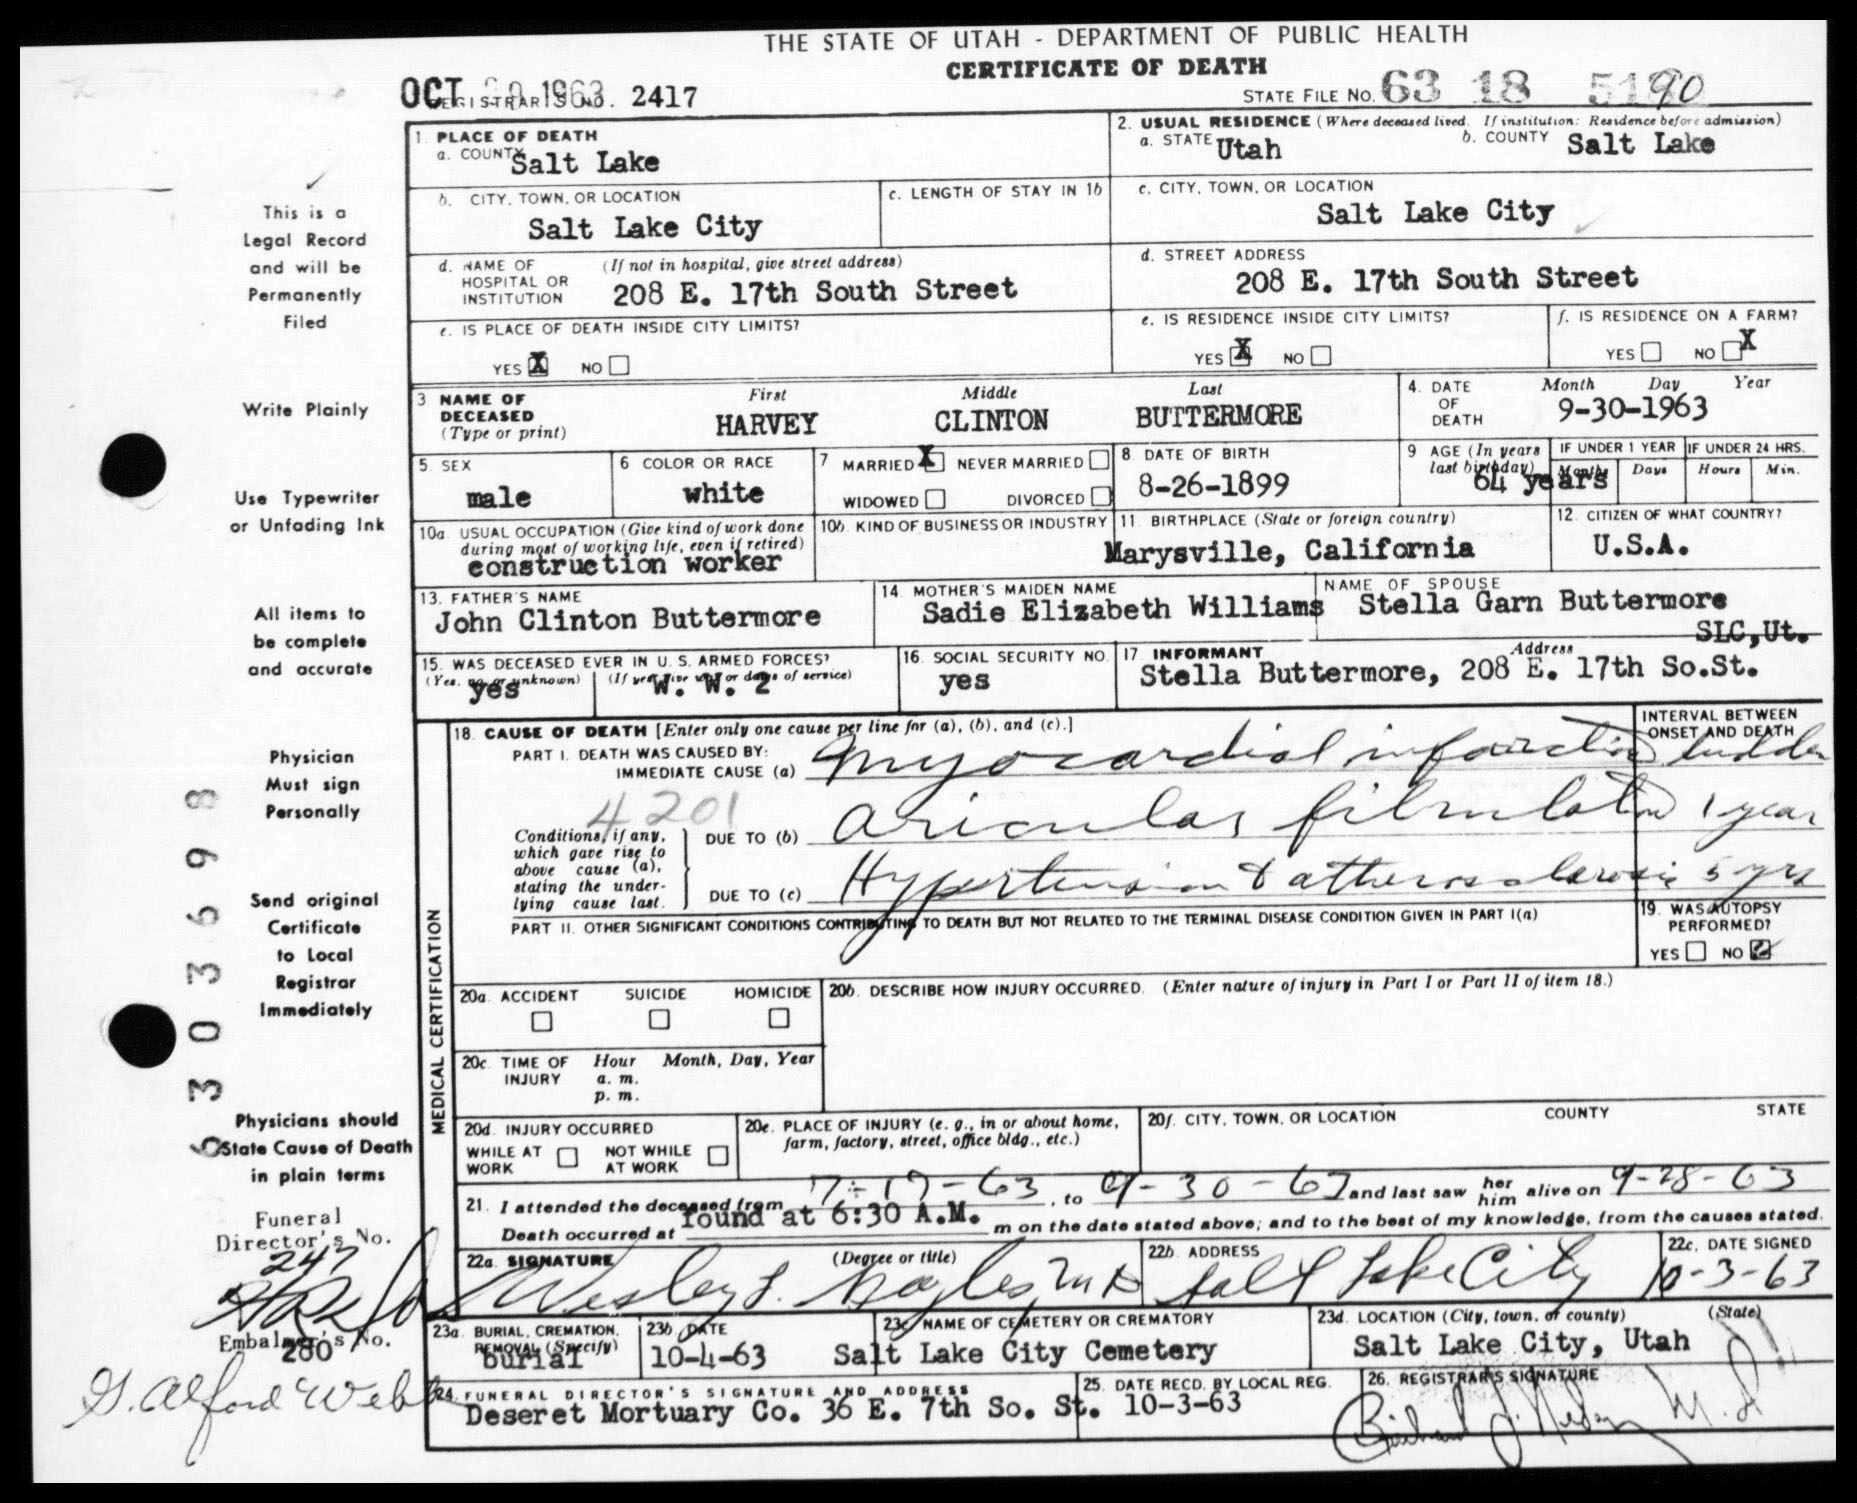 THE STATE OF UTAH - DEPARTMENT OF PUBLIC HEALTH
CERTIFICATE OF DEATH
OCT 1963 REGISTRAR'S NO. 2417
STATE FILE NO. 63 18 5190
1. PLACE OF DEATH
a. COUNTY Salt Lake
2. USUAL RESIDENCE (Where deceased lived. If institution: Residence before admission)
a. STATE Utah b. COUNTY Salt Lake
b. CITY, TOWN, OR LOCATION
Salt Lake City
c. LENGTH OF STAY IN 1b
c. CITY, TOWN, OR LOCATION
Salt Lake City
d. NAME OF HOSPITAL OR INSTITUTION (If not in hospital, give street address)
208 E. 17th South Street
d. STREET ADDRESS
208 E. 17th South Street
e. IS PLACE OF DEATH INSIDE CITY LIMITS?
YES X NO
e. IS RESIDENCE INSIDE CITY LIMITS?
YES X NO
f. IS RESIDENCE ON A FARM?
YES NO X
3. NAME OF DECEASED (Type or print)
First Middle Last
HARVEY CLINTON BUTTERMORE
4. DATE OF DEATH Month Day Year
9-30-1963
5. SEX
male
6 COLOR OR RACE
white
7 MARRIED X NEVER MARRIED
WIDOWED DIVORCED
8. DATE OF BIRTH
8-26-1899
9 AGE (In years last birthday)
64 years
IF UNDER 1 YEAR IF UNDER 24 HRS.
Months Days Hours Min.
10a. USUAL OCCUPATION (Give kind of work done during most of working life, even if retired)
construction worker
10b. KIND OF BUSINESS OR INDUSTRY
11. BIRTHPLACE (State or foreign country)
Marysville, California
12. CITIZEN OF WHAT COUNTRY?
U.S.A.
13. FATHER'S NAME
John Clinton Buttermore
14. MOTHER'S MAIDEN NAME
Sadie Elizabeth Williams
NAME OF SPOUSE
Stella Garn Buttermore
15. WAS DECEASED EVER IN U. S. ARMED FORCES?
(Yes, no, or unknown) (If yes, give war or dates of service)
yes W. W. 2
16. SOCIAL SECURITY NO.
yes
17. INFORMANT Address SLC, Ut.
Stella Buttermore, 208 E. 17th So.St.
MEDICAL CERTIFICATION
18. CAUSE OF DEATH [Enter only one cause per line for (a), (b), and (c).]
INTERVAL BETWEEN ONSET AND DEATH
PART I. DEATH WAS CAUSED BY:
IMMEDIATE CAUSE (a) Myocardial infarction sudden
4201
Conditions, if any, which gave rise to above cause (a), stating the underlying cause last.
DUE TO (b) Auricular fibrillation 1 year
DUE TO (c) Hypertension & atherosclerosis 5 yrs
PART II. OTHER SIGNIFICANT CONDITIONS CONTRIBUTING TO DEATH BUT NOT RELATED TO THE TERMINAL DISEASE CONDITION GIVEN IN PART I(a)
19. WAS AUTOPSY PERFORMED?
YES NO
20a. ACCIDENT SUICIDE HOMICIDE
20b. DESCRIBE HOW INJURY OCCURRED. (Enter nature of injury in Part I or Part II of item 18.)
20c. TIME OF INJURY Hour Month, Day, Year
a. m.
p. m.
20d. INJURY OCCURRED
WHILE AT WORK NOT WHILE AT WORK
20e. PLACE OF INJURY (e. g., in or about home, farm, factory, street, office bldg., etc.)
20f. CITY, TOWN, OR LOCATION COUNTY STATE
21. I attended the deceased from 7-17-63, to 9-30-63 and last saw her him alive on 9-28-63
Death occurred at found at 6:30 A.M. m on the date stated above; and to the best of my knowledge, from the causes stated.
22a. SIGNATURE (Degree or title)
Wesley L. MD
22b. ADDRESS
Salt Lake City
22c. DATE SIGNED
10-3-63
23a. BURIAL, CREMATION, REMOVAL (Specify)
burial
23b DATE
10-4-63
23c NAME OF CEMETERY OR CREMATORY
Salt Lake City Cemetery
23d. LOCATION (City, town, or county) (State)
Salt Lake City, Utah
24. FUNERAL DIRECTOR'S SIGNATURE AND ADDRESS
Deseret Mortuary Co. 36 E. 7th So. St.
25. DATE RECD. BY LOCAL REG.
10-3-63
26. REGISTRAR'S SIGNATURE
M.D.
This is a
Legal Record
and will be
Permanently
Filed
Write Plainly
Use Typewriter
or Unfading Ink
All items to
be complete
and accurate
Physician
Must sign
Personally
Send original
Certificate
to Local
Registrar
Immediately
Physicians should
State Cause of Death
in plain terms
Funeral
Director's No.
247
Embalmer's No.
280
G. Alford Webb